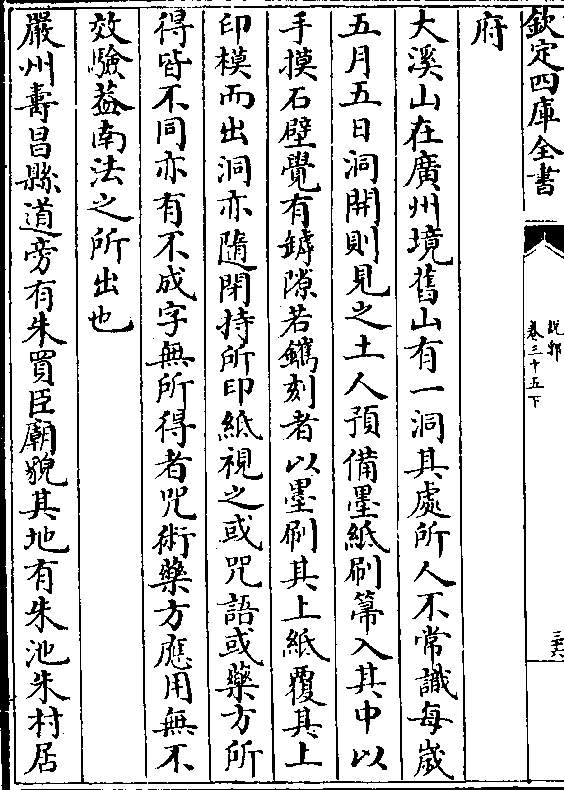 欽定四庫全書
說郛
卷三十五下
三六
府
大溪山在廣州境舊山有一洞其處所人不常識每歲
五月五日洞開則見之土人預備墨紙刷箒入其中以
手摸石壁覺有罅隙若鐫刻者以墨刷其上紙覆其上
印模而出洞亦隨閉持所印紙視之或咒語或藥方所
得皆不同亦有不成字無所得者咒術藥方應用無不
效驗葢南法之所出也
嚴州壽昌縣道旁有朱買臣廟貌其地有朱池朱村居